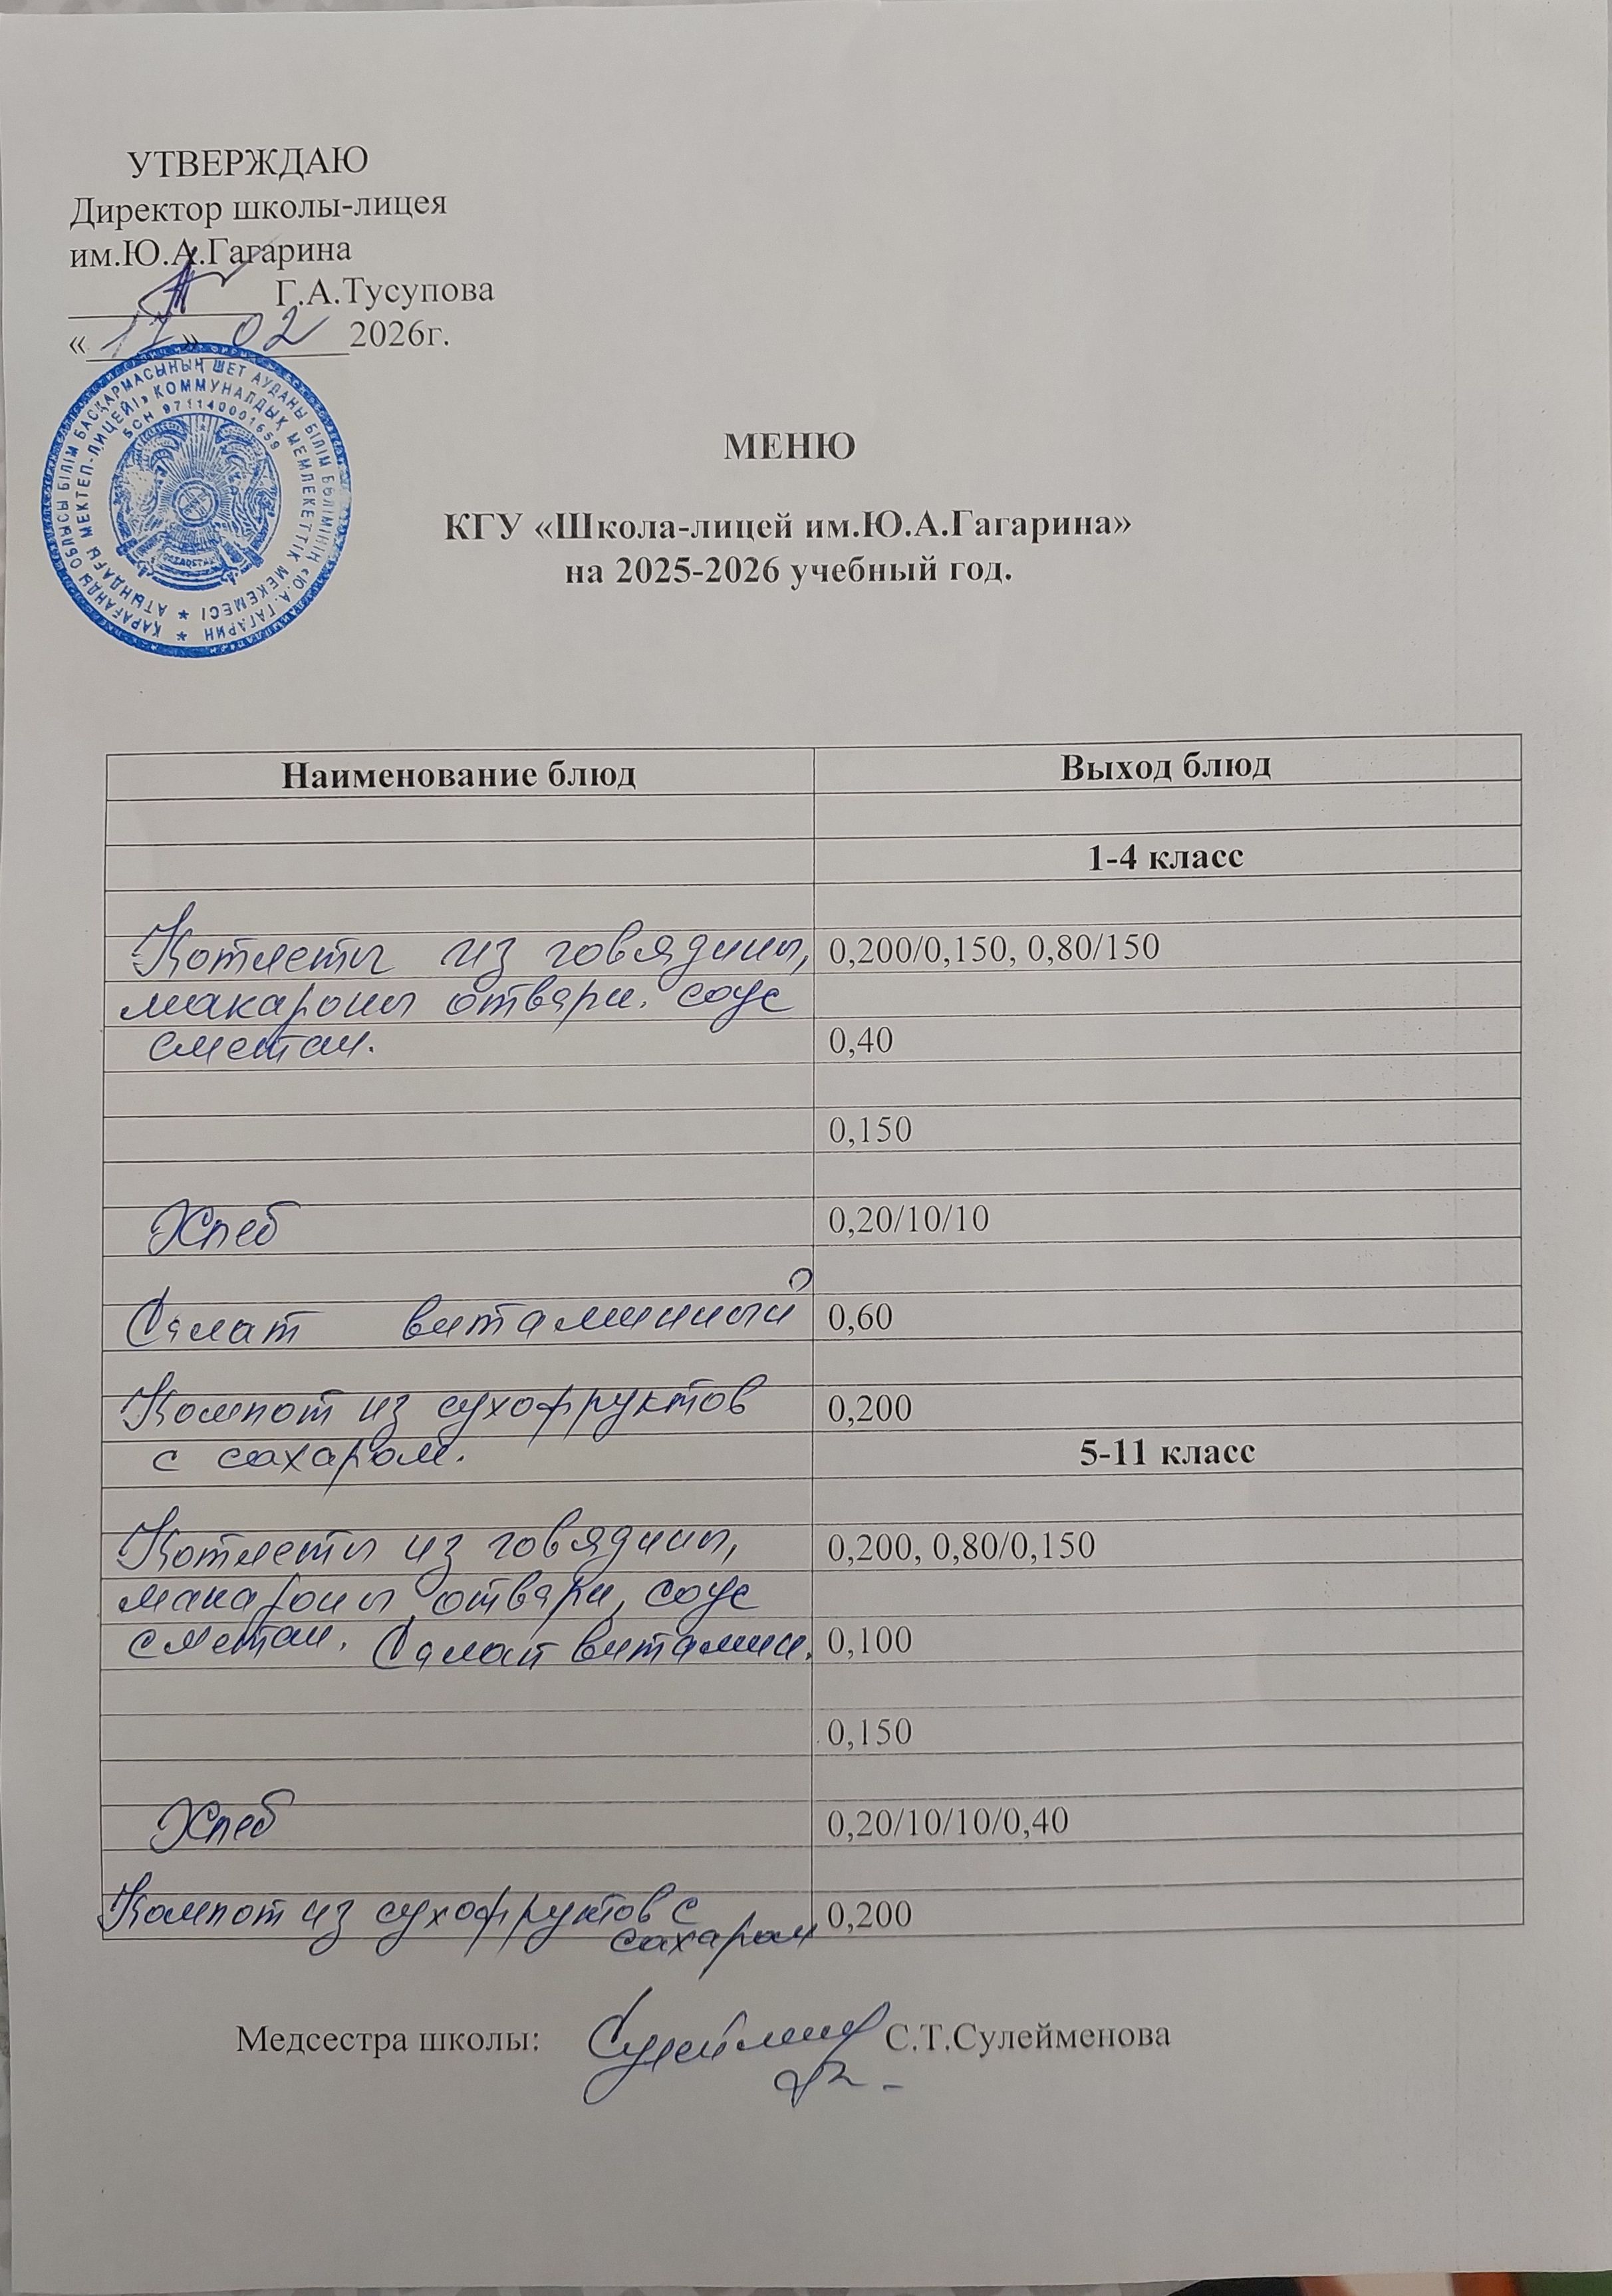 УТВЕРЖДАЮ
Директор школы-лицея
им.Ю.А.Гагарина
Г.А.Тусупова
«17» 02 2026г.
ҚАРАҒАНДЫ ОБЛЫСЫ БІЛІМ БАСҚАРМАСЫНЫҢ ШЕТ АУДАНЫ БІЛІМ БӨЛІМІНІҢ «Ю.А. ГАГАРИН
АТЫНДАҒЫ МЕКТЕП-ЛИЦЕЙІ» КОММУНАЛДЫҚ МЕМЛЕКЕТТІК МЕКЕМЕСІ
БСН 971140001659
МЕНЮ
КГУ «Школа-лицей им.Ю.А.Гагарина»
на 2025-2026 учебный год.
Наименование блюд Выход блюд
1-4 класс
Котлеты из говядины, 0,200/0,150, 0,80/150
макароны отварн. соус
сметан. 0,40
0,150
Хлеб 0,20/10/10
Салат витаминный 0,60
Компот из сухофруктов 0,200
с сахаром. 5-11 класс
Котлеты из говядины, 0,200, 0,80/0,150
макароны отварн, соус
сметан. Салат витамин. 0,100
0,150
Хлеб 0,20/10/10/0,40
Компот из сухофруктов с 0,200
сахаром
Медсестра школы: С.Т.Сулейменова